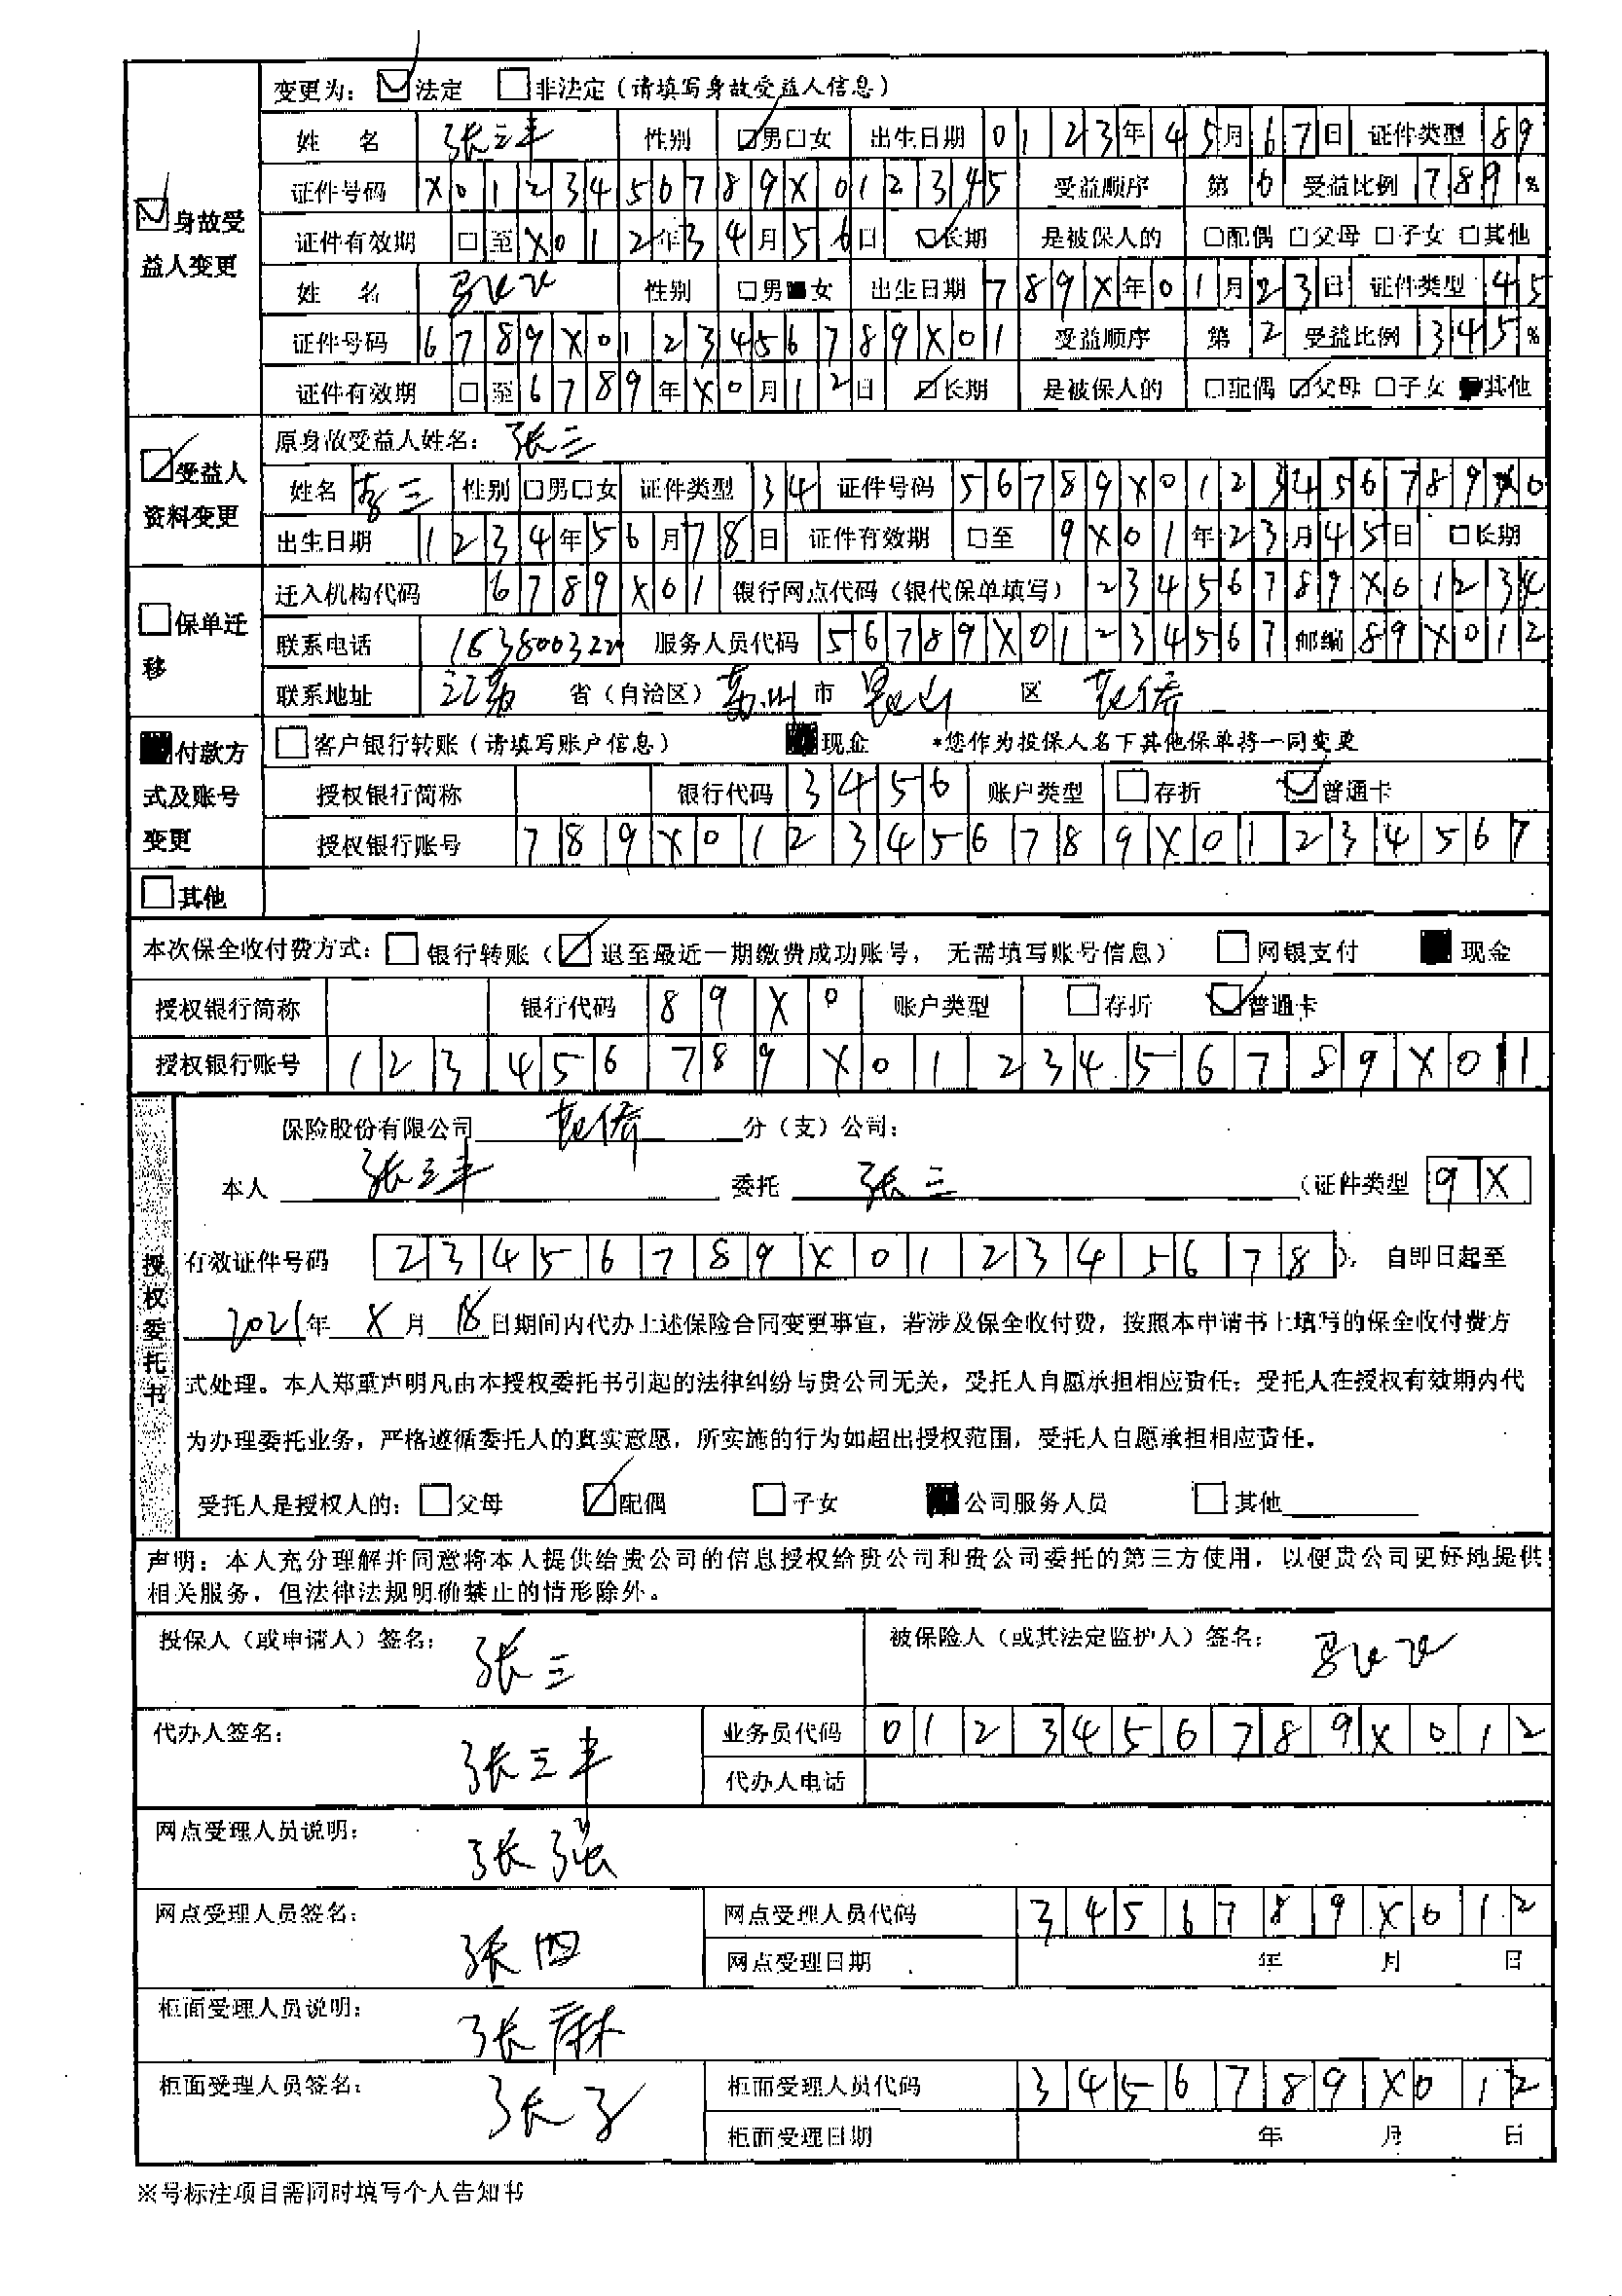 变更为： 法定 非法定（请填写身故受益人信息）
身故受益人变更
姓 名 张三丰 性别 男 女 出生日期 0123年45月67日 证件类型 89
证件号码 X0123456789X012345 受益顺序 第6 受益比例 789%
证件有效期 至X012年34月56日 长期 是被保人的 配偶 父母 子女 其他
姓 名 性别 男 女 出生日期 789X年01月23日 证件类型 45
证件号码 6789X0123456789X01 受益顺序 第2 受益比例 345%
证件有效期 至6789年X0月12日 长期 是被保人的 配偶 父母 子女 其他
受益人资料变更
原身故受益人姓名： 张三
姓名 三 性别 男 女 证件类型 34 证件号码 56789X0123456789X0
出生日期 1234年56月78日 证件有效期 至 9X01年23月45日 长期
保单迁移
迁入机构代码 6789X01 银行网点代码（银代保单填写） 23456789X01234
联系电话 服务人员代码 56789X01234567 邮编 89X012
联系地址 江苏 省（自治区） 苏州 市 昆山 区 花桥
付款方式及账号变更
客户银行转账（请填写账户信息） 现金 *您作为投保人名下其他保单将一同变更
授权银行简称 银行代码 3456 账户类型 存折 普通卡
授权银行账号 789X0123456789X01234567
其他
本次保全收付费方式： 银行转账（ 退至最近一期缴费成功账号， 无需填写账号信息） 网银支付 现金
授权银行简称 银行代码 89X0 账户类型 存折 普通卡
授权银行账号 123456789X0123456789X01
授权委托书
保险股份有限公司 花桥 分（支）公司：
本人 张三丰 委托 张三 （证件类型 9X
有效证件号码 23456789X012345678 ）， 自即日起至
2021年 X月 18日期间内代办上述保险合同变更事宜，若涉及保全收付费，按照本申请书上填写的保全收付费方
式处理。本人郑重声明凡由本授权委托书引起的法律纠纷与贵公司无关，受托人自愿承担相应责任；受托人在授权有效期内代
为办理委托业务，严格遵循委托人的真实意愿，所实施的行为如超出授权范围，受托人自愿承担相应责任。
受托人是授权人的： 父母 配偶 子女 公司服务人员 其他
声明：本人充分理解并同意将本人提供给贵公司的信息授权给贵公司和贵公司委托的第三方使用，以便贵公司更好地提供
相关服务，但法律法规明确禁止的情形除外。
投保人（或申请人）签名： 张三 被保险人（或其法定监护人）签名：
代办人签名： 张三丰 业务员代码 0123456789X012
代办人电话
网点受理人员说明： 张强
网点受理人员签名： 张四 网点受理人员代码 3456789X012
网点受理日期 年 月 日
柜面受理人员说明： 张麻
柜面受理人员签名： 张子 柜面受理人员代码 3456789X012
柜面受理日期 年 月 日
※号标注项目需同时填写个人告知书